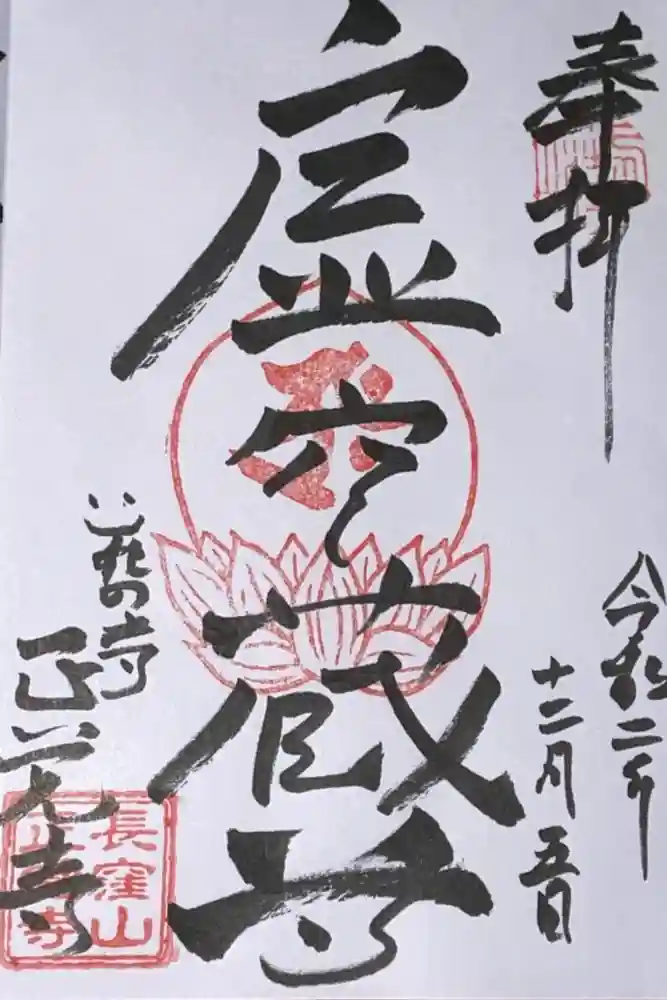 奉拝
令和二年
十二月五日
虚空蔵尊
の寺
正覚寺
長窪山
正覚寺